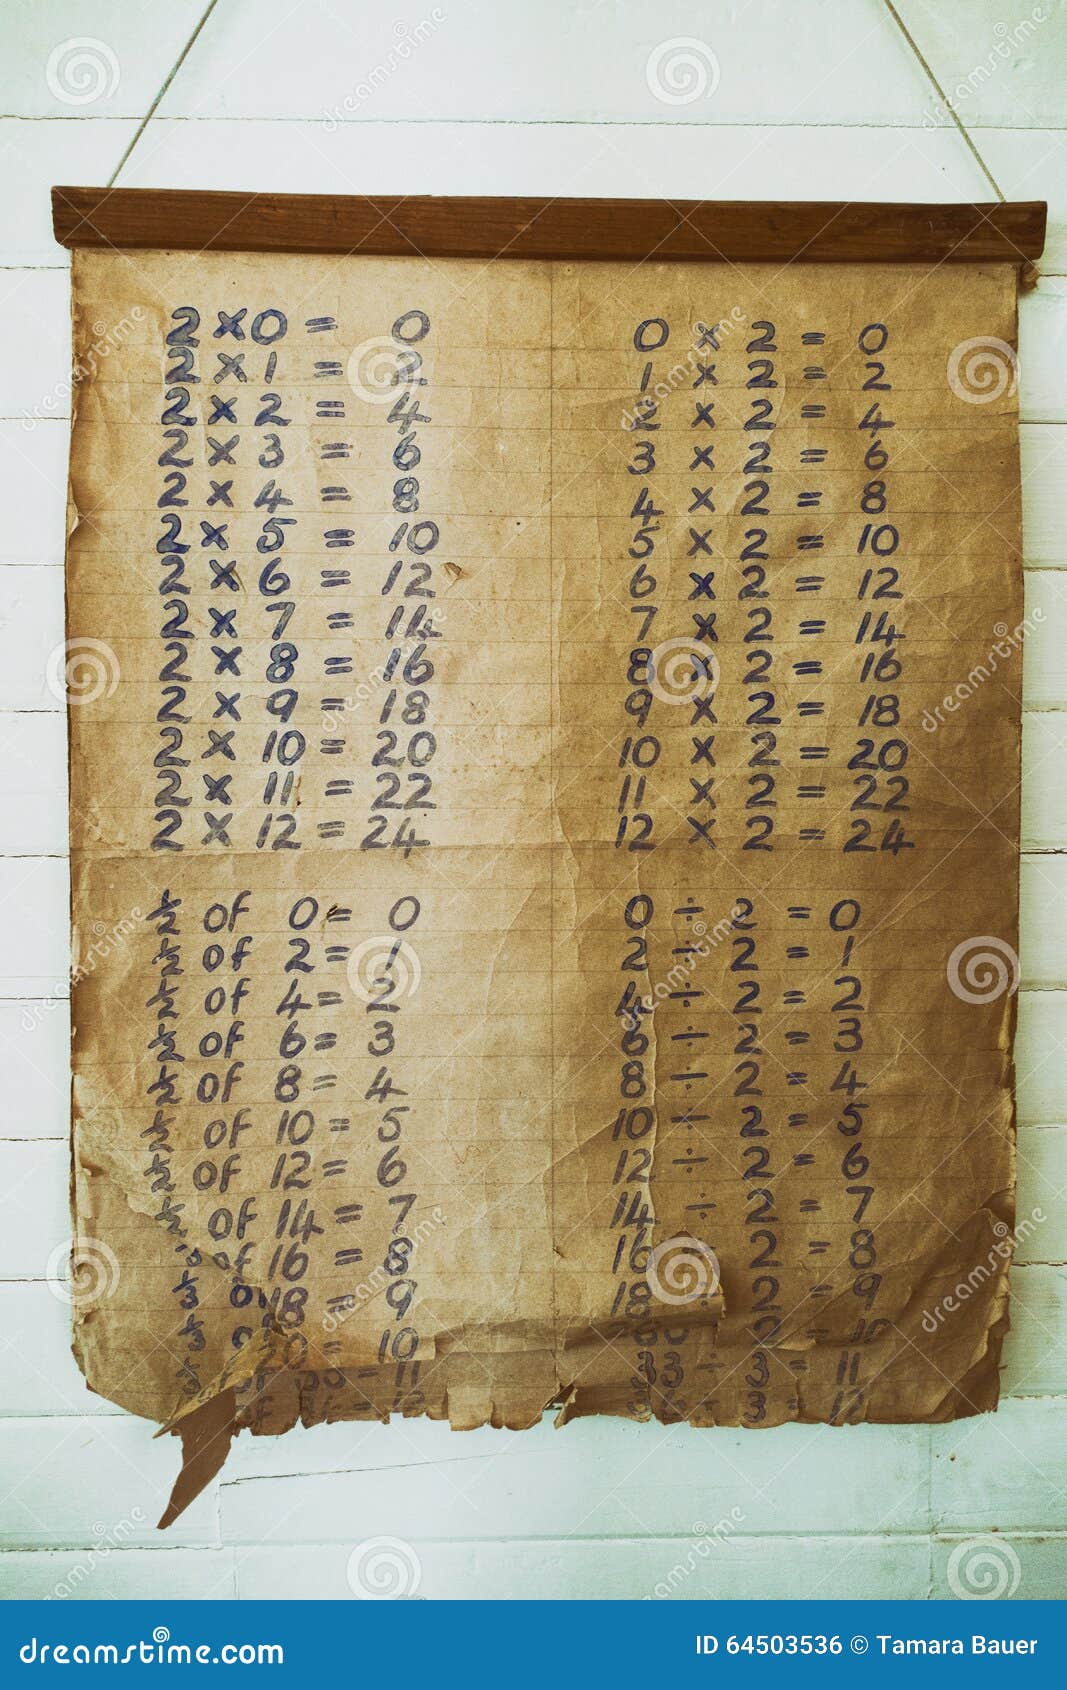 2 × 0 = 0
2 × 1 = 2
2 × 2 = 4
2 × 3 = 6
2 × 4 = 8
2 × 5 = 10
2 × 6 = 12
2 × 7 = 14
2 × 8 = 16
2 × 9 = 18
2 × 10 = 20
2 × 11 = 22
2 × 12 = 24
0 × 2 = 0
1 × 2 = 2
2 × 2 = 4
3 × 2 = 6
4 × 2 = 8
5 × 2 = 10
6 × 2 = 12
7 × 2 = 14
8 × 2 = 16
9 × 2 = 18
10 × 2 = 20
11 × 2 = 22
12 × 2 = 24
½ of 0 = 0
½ of 2 = 1
½ of 4 = 2
½ of 6 = 3
½ of 8 = 4
½ of 10 = 5
½ of 12 = 6
½ of 14 = 7
of 16 = 8
18 = 9
20 = 10
= 11
= 12
0 ÷ 2 = 0
2 ÷ 2 = 1
4 ÷ 2 = 2
6 ÷ 2 = 3
8 ÷ 2 = 4
10 ÷ 2 = 5
12 ÷ 2 = 6
14 ÷ 2 = 7
16 2 = 8
18 2 = 9
2 = 10
33 ÷ 3 = 11
÷ 3 = 12
dreamstime.com
ID 64503536 © Tamara Bauer